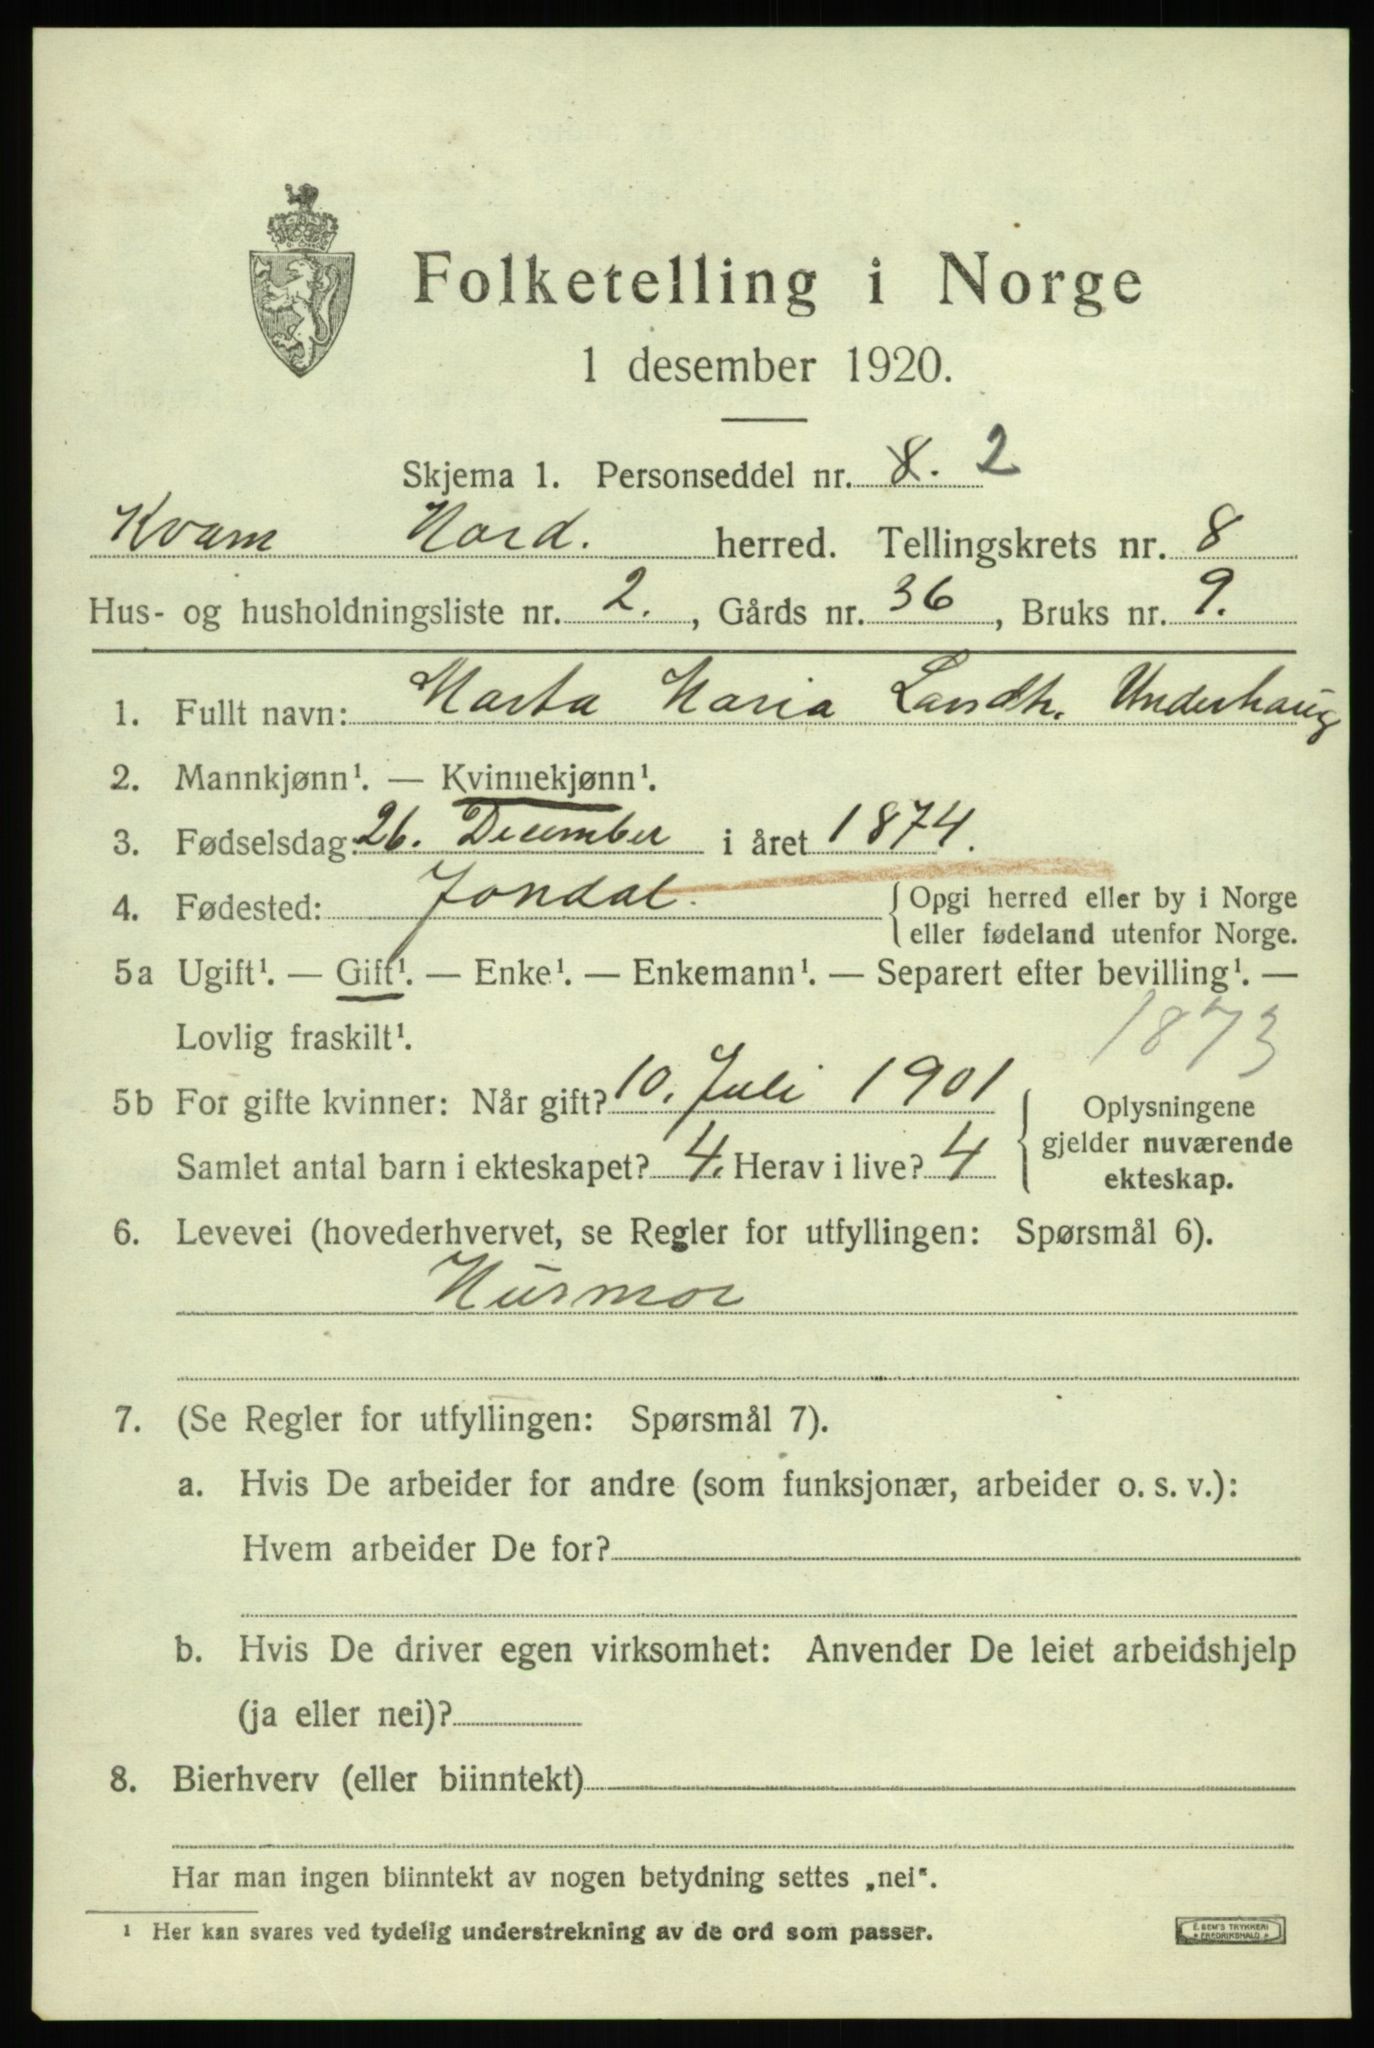 Folketelling i Norge
1 desember 1920.
Skjema 1. Personseddel nr. 8. 2
Kvam Nord. herred. Tellingskrets nr. 8
Hus- og husholdningsliste nr. 2., Gårds nr. 36, Bruks nr. 9.
1. Fullt navn: Marta Maria Landth. Underhaug
2. Mannkjønn¹. — Kvinnekjønn¹.
3. Fødselsdag: 26. December i året 1874.
4. Fødested: Jondal. { Opgi herred eller by i Norge
eller fødeland utenfor Norge.
5a Ugift¹. — Gift¹. — Enke¹. — Enkemann¹. — Separert efter bevilling¹. —
Lovlig fraskilt¹. 1873
5b For gifte kvinner: Når gift? 10. Juli 1901 { Oplysningene
gjelder nuværende
Samlet antal barn i ekteskapet? 4. Herav i live? 4
ekteskap.
6. Levevei (hovederhvervet, se Regler for utfyllingen: Spørsmål 6).
Husmor
7. (Se Regler for utfyllingen: Spørsmål 7).
a. Hvis De arbeider for andre (som funksjonær, arbeider o. s. v.):
Hvem arbeider De for?
b. Hvis De driver egen virksomhet: Anvender De leiet arbeidshjelp
(ja eller nei)?
8. Bierhverv (eller biinntekt)
Har man ingen biinntekt av nogen betydning settes „nei“.
¹ Her kan svares ved tydelig understrekning av de ord som passer.
E. SEM'S TRYKKERI
FREDRIKSHALD